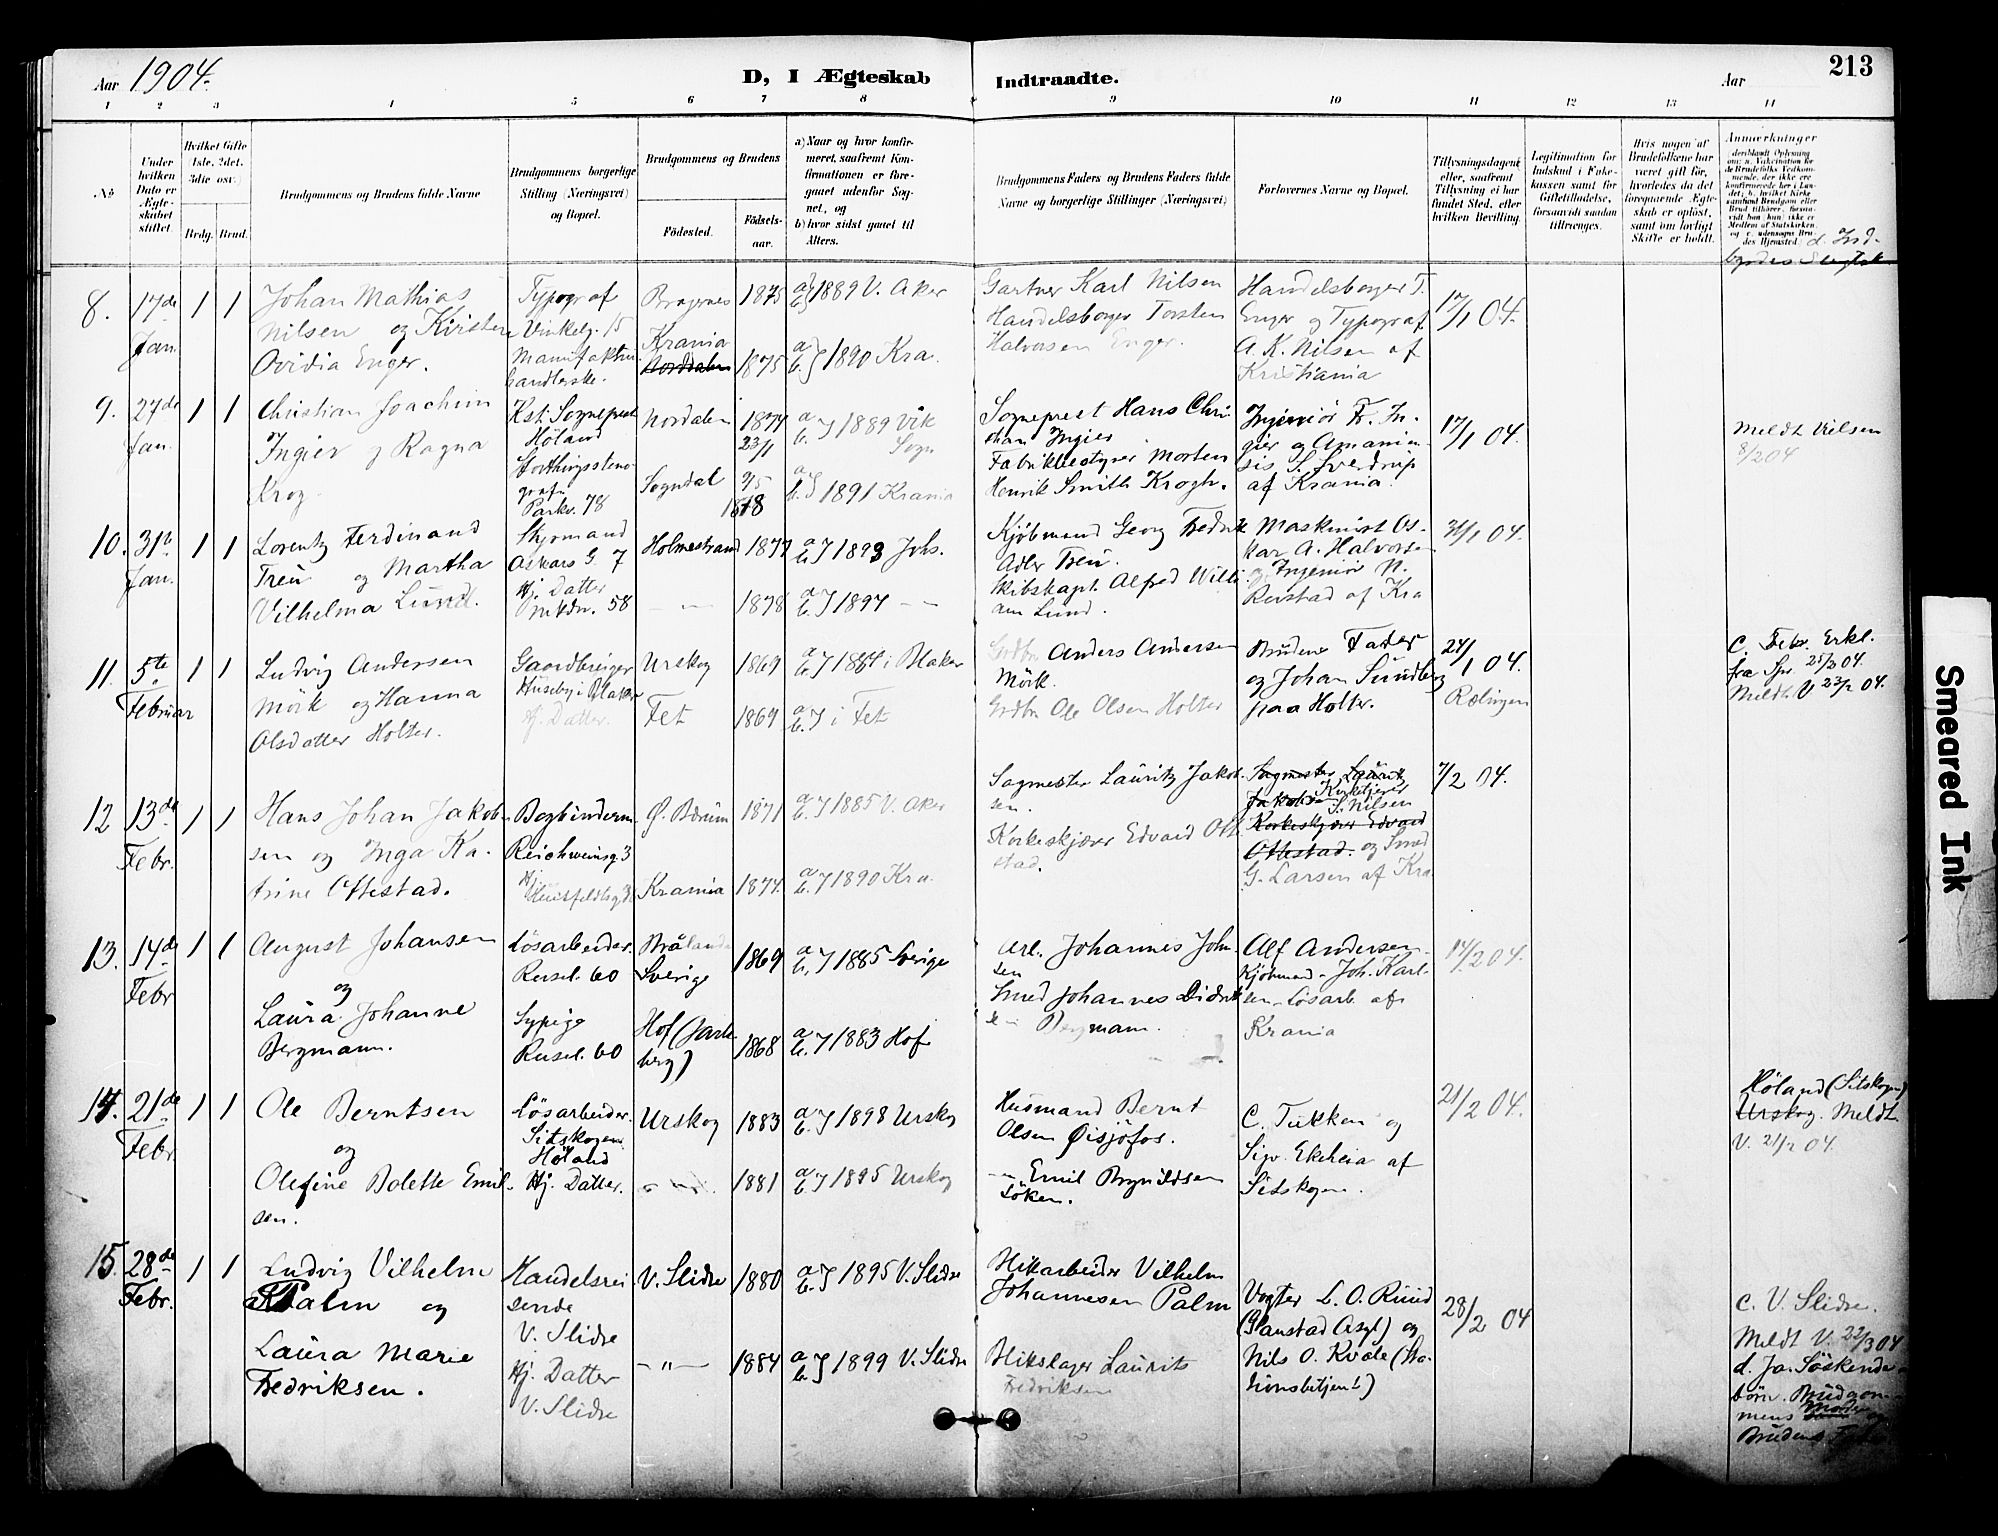 Aar 1904.
D, I Ægteskab Indtraadte.
Aar
213
1 2 3 4 5 6 7 8 9 10 11 12 13 14
No
Under hvilken Dato er Ægteskabet stiftet.
Hvilket Gifte (1ste, 2det, 3die osv.)
Brdg. Brud.
Brudgommens og Brudens fulde Navne
Brudgommens borgerlige Stilling (Næringsvei) og Bopæl.
Brudgommens og Brudens
Födested.
Födselsaar.
a) Naar og hvor konfirmeret, saafremt Konfirmationen er foregaaet udenfor Sognet, og
b) hvor sidst gaaet til Alters.
Brudgommens Faders og Brudens Faders fulde Navne og borgerlige Stillinger (Næringsvei)
Forlovernes Navne og Bopæl.
Tillysningsdagene eller, saafremt Tillysning ei har fundet Sted, efter hvilken Bevilling.
Legitimation for Indskud i Enkekassen samt for Giftetilladelse, forsaavidt saadan tiltrænges.
Hvis nogen af Brudefolkene har været gift før, hvorledes da det foregaaende Ægteskab er opløst, samt om lovligt Skifte er holdt.
Anmerkninger
d. Indbyrdes Slegtsk.
8. 17de Jan. 1 1
Johan Mathias
Nilsen og Kirsten
Ovidia Enger.
Typograf
Vinkelg. 15
Manufaktur
handlerske.
Bragernes 1875
Krania
Norddalen 1875
a b } 1889 V. Aker
a b } 1890 Kra.
Gartner Karl Nilsen
Handelsborger Torsten
Halvorsen Enger.
Handelsborger T.
Enger og Typograf
A. K. Nilsen af
Kristiania
17/1 04.
9. 27de Jan. 1 1
Christian Joachim
Ingier og Ragna
Krog
Kst. Sogneprest
Høland
Storthingssteno-
graf
Parkv. 78
Nordalen 1874 23/1
Sogndal 9/5 1878
a b } 1889 Vik Sogn
a b } 1891 Krania
Sogneprest Hans Chri-
stian Ingier
Fabrikbestyrer Morten
Henrik Smith Krogh.
Ingeniør Fr. In-
gier og Amanin-
sis S. Sverdrup
af Krania.
17/1 04.
Meldt Vielsen
8/2 04
10. 31te Jan. 1 1
Lorentz Ferdinand
Treu og Martha
Vilhelma Lund.
Styrmand
Oskars G. 7
Hj. Datter
Holmestrand 1877
— " — 1878
a b } 1893 Johs.
a b } 1894 — —
Kjøbmand Georg Fredrik
Adler Treu.
Skibskapt. Alfred Willi-
am Lund.
Maskinist Os-
kar A. Halvorsen
og Ingeniør N.
Reistad af Kra
31/1 04.
11. 5te Februar 1 1
Ludvig Andersen
Mörk og Hanna
Olsdatter Holter.
Gaardbruger
Huseby i Blaker
Hj. Datter.
Urskog 1869
Fet 1869
a b } 1884 i Blaker
a b } i Fet
Grdbr Anders Andersen
Mörk.
Grdbr Ole Olsen Holter
Brudens Fader
og Johan Sundberg
paa Holter.
24/1 04.
Rælingen
c. Febr. Erkl.
fra Spr. 25/2 04.
Meldt V 23/2 04.
12 13de Febr. 1 1
Hans Johan Jakob-
sen og Inga Ka-
trine Ottestad.
Bogbinderm.
Reichweinsg. 3
Hj.
Huitfeldtsg. 3
Ø. Bærum 1871
Krania 1874.
a b } 1885 V. Aker
a b } 1890 Kra.
Sagmester Lauritz Jakob-
sen.
Korkeskjærer Edvard Ott-
stad.
Sagmester Lauritz
Jakobsen Kirketjener
S. Nilsen
Korkeskjærer Edvard
Ottestad. og Smed
G. Larsen af Kra
7/2 04.
13. 14de Febr 1 1
August Johansen
og
Laura Johanne
Bergmann.
Lösarbeider.
Rusel. 60
Sypige
Rusel. 60
Brålanda
Sverige 1869
Hof (Jarls-
berg) 1868
a b } 1885 Sverige
a b } 1883 Hof
Arb. Johannes John-
sen
Smed Johannes Didrik-
Bergmann.
Alf Andersen-
Kjöbmand - Joh. Karl-
sen - Lösarb. af
Krania
14/2 04.
14. 21de Febr. 1 1
Ole Berntsen
og
Olefine Bolette Emil-
sen.
Lösarbeider.
Sitskogen
Høland
Hj. Datter.
Urskog 1883
— " — 1881
a b } 1898 Urskog
a b } 1895 Urskog
Husmand Bernt
Olsen Øisjöfos.
— " — Emil Brynildsen
Löken.
C. Tukken og
Sigv. Ekeheia af
Sitskogen.
21/2 04.
Høland (Sitskogen)
Urskog. Meldt
V. 21/2 04.
15. 28de Febr. 1 1
Ludvig Vilhelm
Palm og
Laura Marie
Fredriksen.
Handelsrei-
sende
V. Slidre
Hj. Datter
V. Slidre
V. Slidre 1880
— " — 1884
a b } 1895 V. Slidre
a b } 1899 V. Slidre
Blikarbeider Vilhelm
Johannesen Palm
Blikslager Laurits
Fredriksen
Vogter L. O. Ruud
(Gaustad Asyl) og
Nils O. Kvåle (Sta-
tionsbetjent)
28/2 04
c. V. Slidre.
Meldt V. 22/3 04
d. Ja. Söskende-
börn. Brudgom-
mens Moder og
Brudens
Smeared Ink